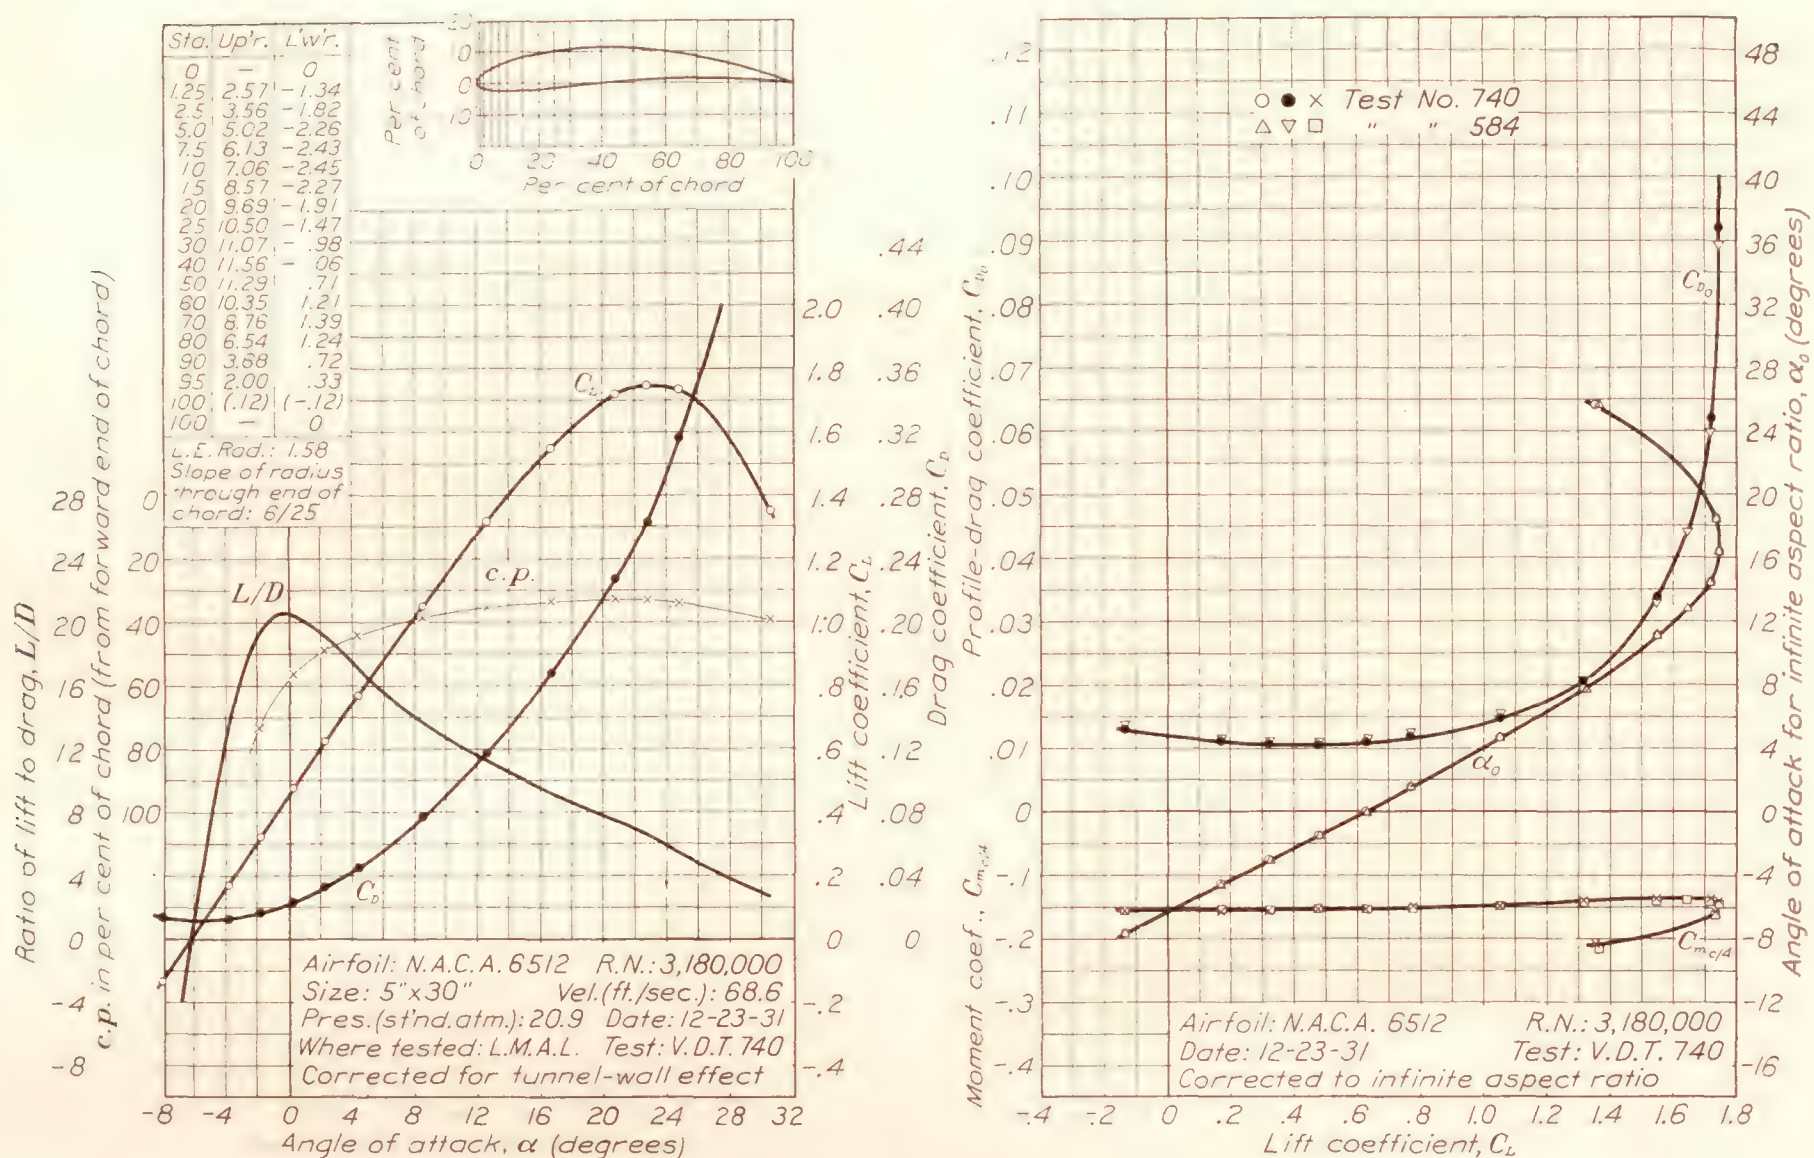 Sta. Up'r. L'w'r.
0 – 0
1.25 2.57 -1.34
2.5 3.56 -1.82
5.0 5.02 -2.26
7.5 6.13 -2.43
10 7.06 -2.45
15 8.57 -2.27
20 9.69 -1.91
25 10.50 -1.47
30 11.07 -.98
40 11.56 -.06
50 11.29 .71
60 10.35 1.21
70 8.76 1.39
80 6.54 1.24
90 3.68 .72
95 2.00 .33
100 (.12) (-.12)
100 – 0
L.E. Rad.: 1.58
Slope of radius
through end of
chord: 6/25
Per cent
of chord
20
10
0
10
0 20 40 60 80 100
Per cent of chord
Ratio of lift to drag, L/D
28
24
20
16
12
8
4
0
-4
-8
c.p. in per cent of chord (from forward end of chord)
0
20
40
60
80
100
L/D
c.p.
C_L
C_D
2.0
1.8
1.6
1.4
1.2
1.0
.8
.6
.4
.2
0
-.2
-.4
Lift coefficient, C_L
.44
.40
.36
.32
.28
.24
.20
.16
.12
.08
.04
0
Drag coefficient, C_D
Airfoil: N.A.C.A. 6512 R.N.: 3,180,000
Size: 5"x30" Vel.(ft./sec.): 68.6
Pres.(st'nd.atm.): 20.9 Date: 12-23-31
Where tested: L.M.A.L. Test: V.D.T. 740
Corrected for tunnel-wall effect
-8 -4 0 4 8 12 16 20 24 28 32
Angle of attack, α (degrees)
Profile-drag coefficient, C_D₀
.12
.11
.10
.09
.08
.07
.06
.05
.04
.03
.02
.01
0
Moment coef., C_m c/4
-.1
-.2
-.3
-.4
○ ● × Test No. 740
△ ▽ □ " " 584
C_D₀
α₀
C_m c/4
48
44
40
36
32
28
24
20
16
12
8
4
0
-4
-8
-12
-16
Angle of attack for infinite aspect ratio, α₀ (degrees)
Airfoil: N.A.C.A. 6512 R.N.: 3,180,000
Date: 12-23-31 Test: V.D.T. 740
Corrected to infinite aspect ratio
-.4 -.2 0 .2 .4 .6 .8 1.0 1.2 1.4 1.6 1.8
Lift coefficient, C_L